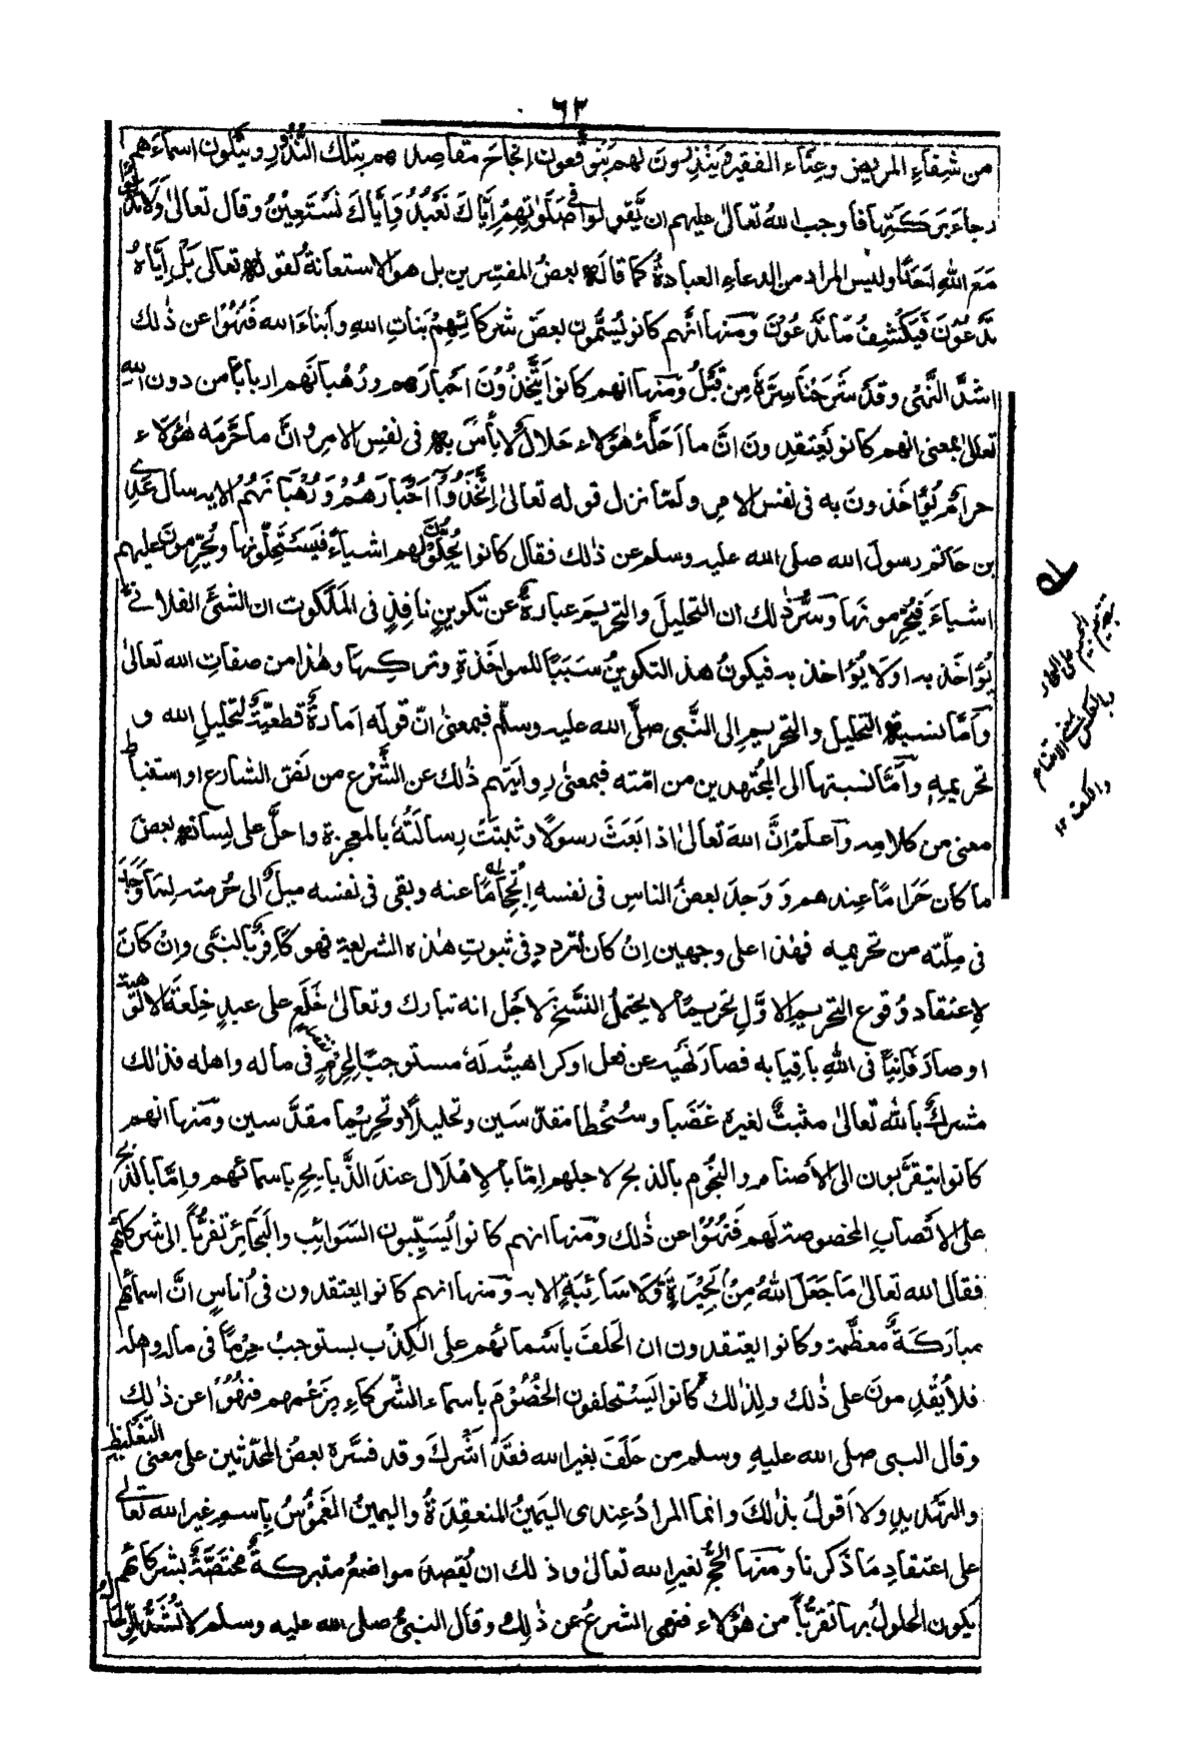 ٦٢
من شفاء المريض وغناء الفقير وينذرون لهم يتوقعون انجاح مقاصدهم بتلك النذور ويتلون اسماءهم
رجاء بركتها فاوجب الله تعالى عليهم ان يقولوا في صلوتهم اياك نعبد واياك نستعين وقال تعالى ولا تدعوا
مع الله احدا وليس المراد من الدعاء العبادة كما قاله بعض المفسرين بل هو الاستعانة كقوله تعالى بل اياه
تدعون فيكشف ما تدعون ومنها انهم كانوا يسمون بعض شركائهم بنات الله وابناء الله فنهوا عن ذلك
اشد النهي وقد شرحنا سره من قبل ومنها انهم كانوا يتخذون احبارهم ورهبانهم اربابا من دون الله
تعالى بمعنى انهم كانوا يعتقدون ان ما احله هؤلاء حلال لا بأس به في نفس الامر وان ما حرمه هؤلاء
حرام يؤاخذون به في نفس الامر ولما نزل قوله تعالى اتخذوا احبارهم ورهبانهم الاية سأل عدي
بن حاتم رسول الله صلى الله عليه وسلم عن ذلك فقال كانوا يحلون لهم اشياء فيستحلونها ويحرمون عليهم
اشياء فيحرمونها وسر ذلك ان التحليل والتحريم عبارة عن تكوين نافذ في الملكوت ان الشئ الفلاني
يؤاخذ به او لا يؤاخذ به فيكون هذا التكوين سببا للمواخذة وتركها وهذا من صفات الله تعالى
واما نسبة التحليل والتحريم الى النبي صلى الله عليه وسلم فبمعنى ان قوله امارة قطعية لتحليل الله و
تحريمه واما نسبتها الى المجتهدين من امته فبمعنى روايتهم ذلك عن الشرع من نص الشارع او استنباط
معنى من كلامه واعلم ان الله تعالى اذا بعث رسولا وثبتت رسالته بالمعجزة واحل على لسانه بعض
ما كان حراما عندهم ووجد بعض الناس في نفسه انحجاما عنه وبقي في نفسه ميل الى حرمته لما وجد
في ملته من تحريمه فهذا على وجهين ان كان لتردد في ثبوت هذه الشريعة فهو كافر بالنبي وان كان
لاعتقاد وقوع التحريم الاول تحريما لا يحتمل النسخ لاجل انه تبارك وتعالى خلع على عبد خلعة الالوهية
او صار فانيا في الله باقيا به فصار نهيه عن فعل او كراهيته له مستوجبا لحرم في ماله واهله فذلك
مشرك بالله تعالى مثبت لغيره غضبا وسخطا مقدسين وتحليلا وتحريما مقدسين ومنها انهم
كانوا يتقربون الى الاصنام والنجوم بالذبح لاجلهم اما بالاهلال عند الذبايح باسمائهم واما بالذبح
على الانصاب المخصوصة لهم فنهوا عن ذلك ومنها انهم كانوا يسيبون السوائب والبحائر تقربا الى شركائهم
فقال الله تعالى ما جعل الله من بحيرة ولا سائبة الاية ومنها انهم كانوا يعتقدون في اناس ان اسمائهم
مباركة معظمة وكانوا يعتقدون ان الحلف باسمائهم على الكذب يستوجب حرما في ماله واهله
فلا يقدمون على ذلك ولذلك كانوا يستحلفون الخصوم باسماء الشركاء بزعمهم فنهوا عن ذلك
وقال النبي صلى الله عليه وسلم من حلف بغير الله فقد اشرك وقد فسره بعض المحدثين على معنى التغليظ
والتهديد ولا اقول بذلك وانما المراد عندي اليمين المنعقدة واليمين الغموس باسم غير الله تعالى
على اعتقاد ما ذكرنا ومنها الحج لغير الله تعالى وذلك ان يقصد مواضع متبركة مختصة بشركائهم
يكون الحلول بها تقربا من هؤلاء فنهى الشرع عن ذلك وقال النبي صلى الله عليه وسلم لا تشد الرحال